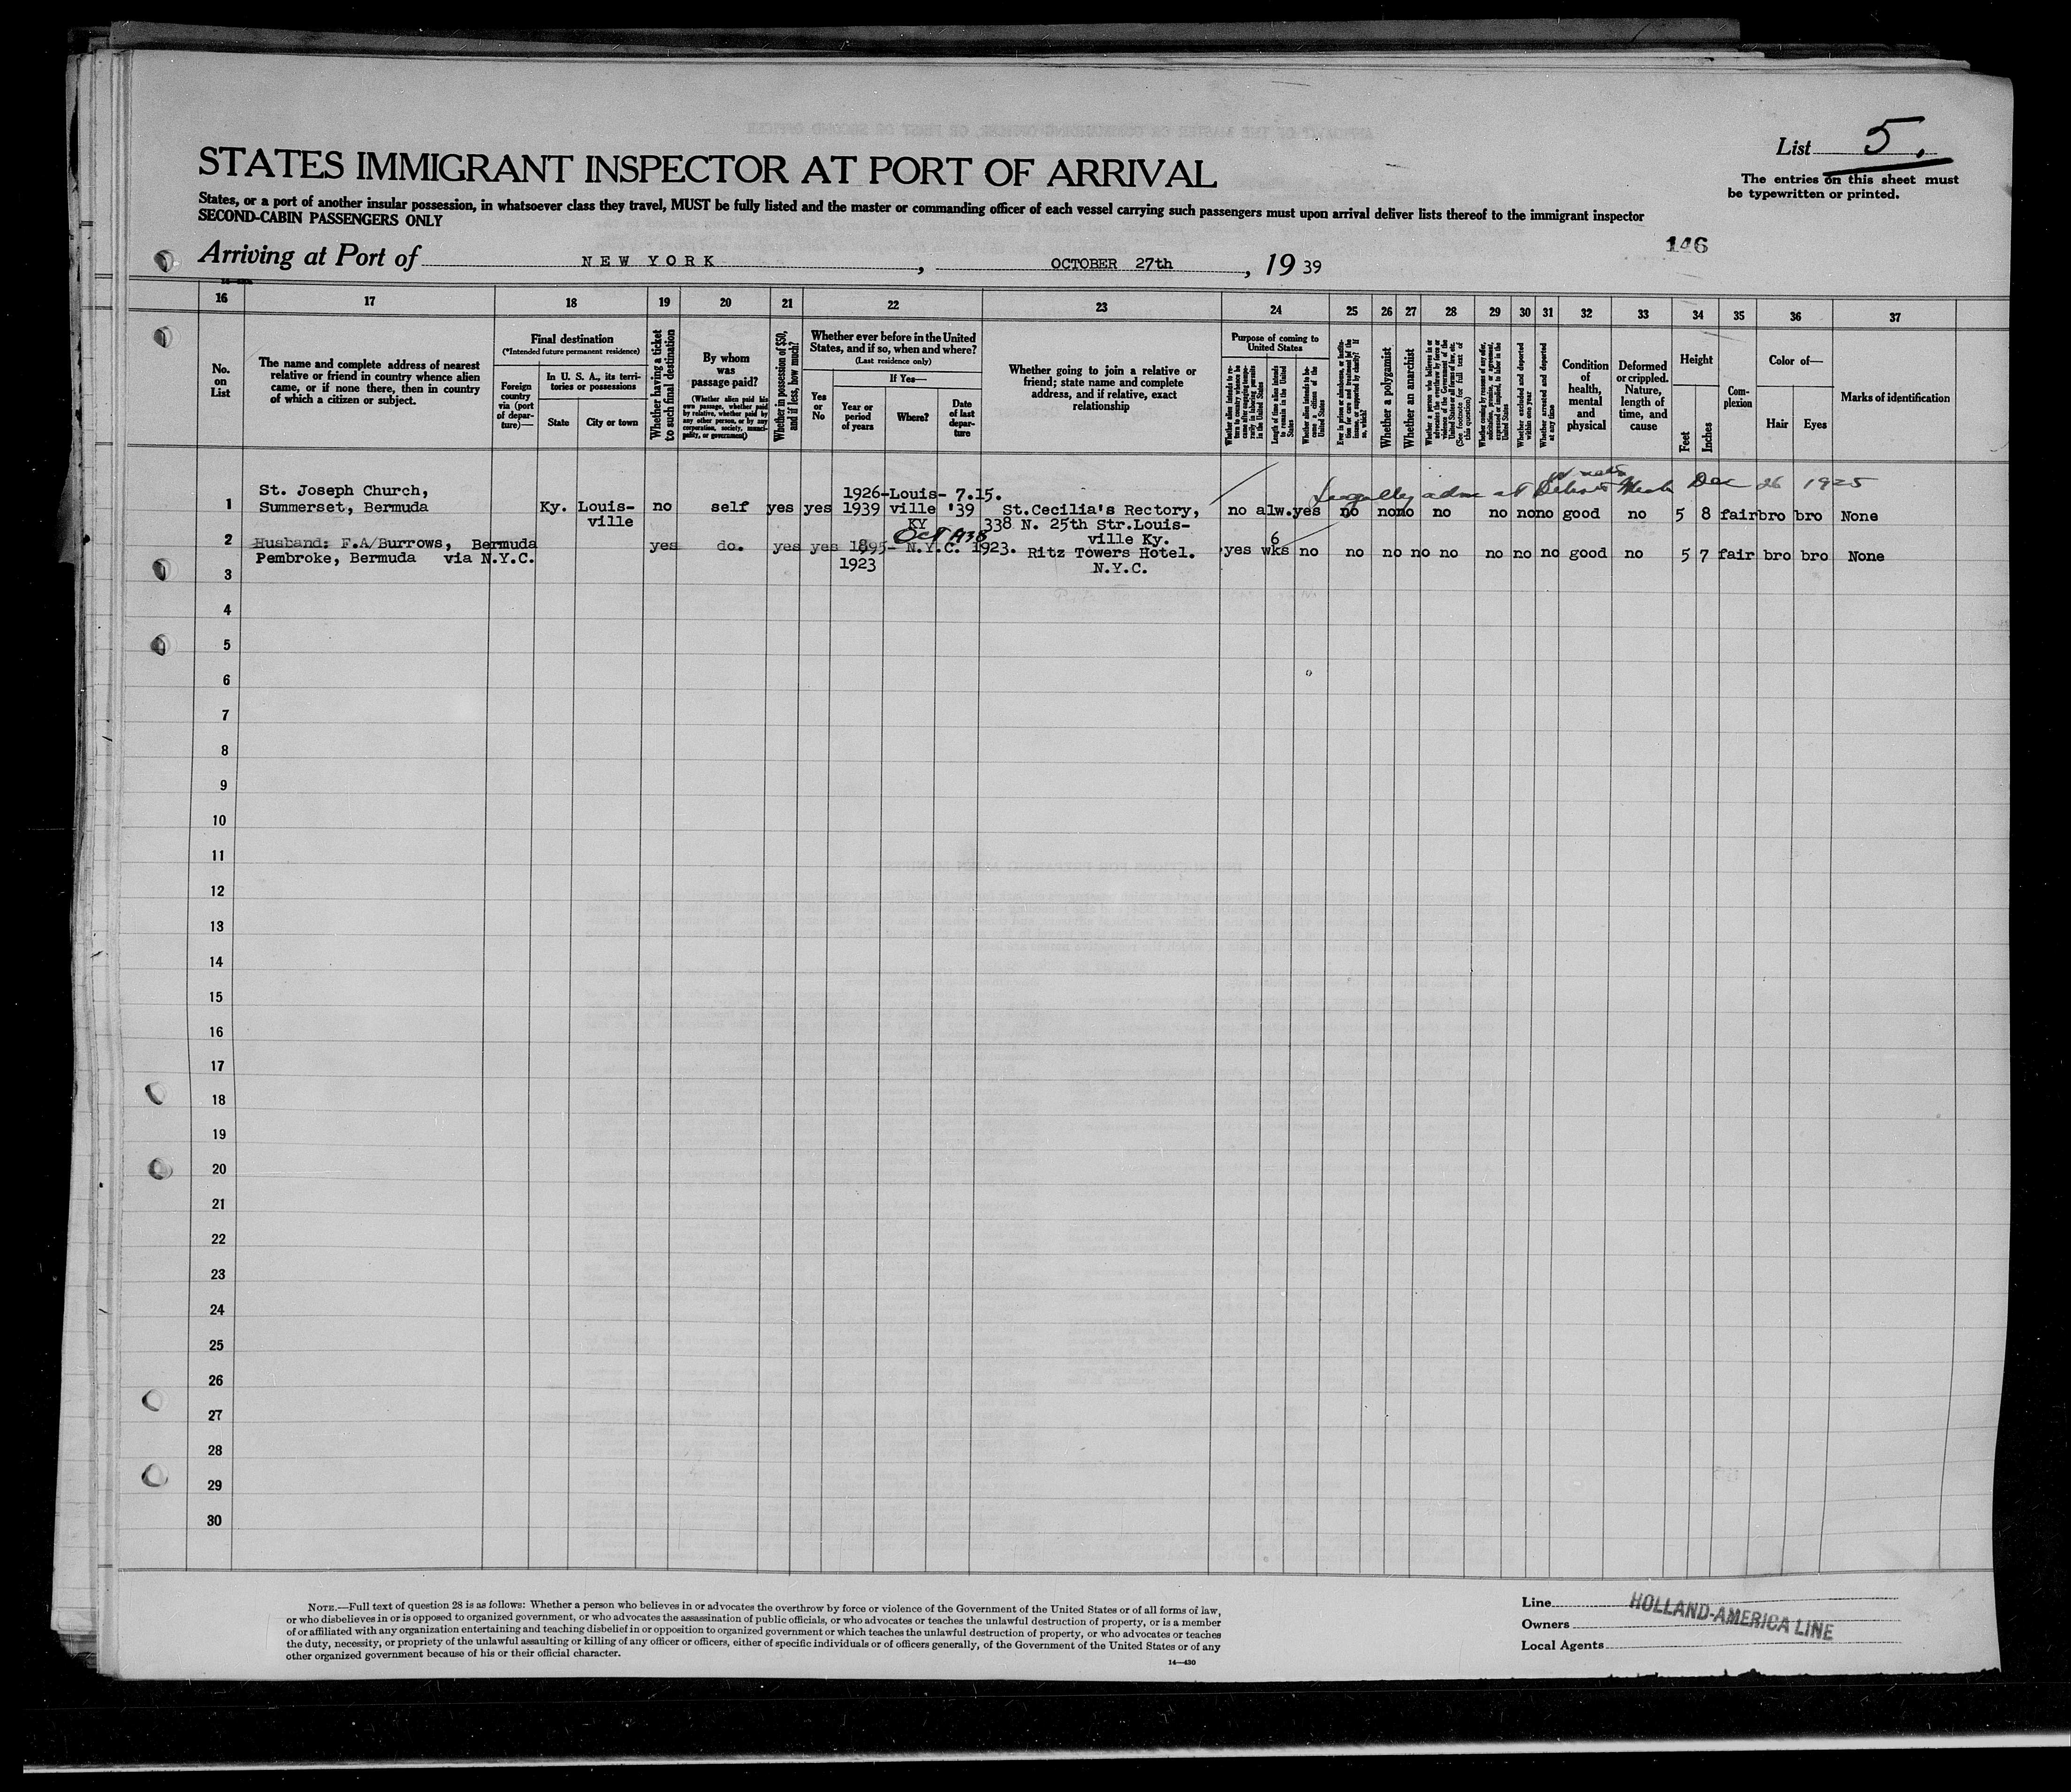 List 5.
The entries on this sheet must
be typewritten or printed.
STATES IMMIGRANT INSPECTOR AT PORT OF ARRIVAL
States, or a port of another insular possession, in whatsoever class they travel, MUST be fully listed and the master or commanding officer of each vessel carrying such passengers must upon arrival deliver lists thereof to the immigrant inspector
SECOND-CABIN PASSENGERS ONLY
146
Arriving at Port of NEW YORK, OCTOBER 27th, 19 39
16 17 18 19 20 21 22 23 24 25 26 27 28 29 30 31 32 33 34 35 36 37
No. on List
The name and complete address of nearest
relative or friend in country whence alien
came, or if none there, then in country
of which a citizen or subject.
Final destination
(*Intended future permanent residence)
Foreign country via (port of departure)—
In U. S. A., its territories or possessions
State
City or town
Whether having a ticket to such final destination
By whom was passage paid?
(Whether alien paid his own passage, whether paid by relative, whether paid by any other person, or by any corporation, society, municipality, or government)
Whether in possession of $50, and if less, how much?
Whether ever before in the United
States, and if so, when and where?
(Last residence only)
Yes or No
If Yes—
Year or period of years
Where?
Date of last departure
Whether going to join a relative or
friend; state name and complete
address, and if relative, exact
relationship
Purpose of coming to United States
Length of time alien intends to remain in the United States
Whether a polygamist
Whether an anarchist
(See footnote for full text of this question)
Whether excluded and deported within one year
Whether arrested and deported at any time
Condition of health, mental and physical
Deformed or crippled. Nature, length of time, and cause
Height
Feet
Inches
Complexion
Color of—
Hair
Eyes
Marks of identification
Dec 26 1925
1 St. Joseph Church,
Summerset, Bermuda
Ky. Louis-
ville
no self yes yes
1926-Louis- 7.15.
1939 ville '39
KY
St.Cecilia's Rectory,
338 N. 25th Str.Louis-
ville Ky.
no alw. yes no no no no no no no good no 5 8 fair bro bro None
2 Husband: F.A/Burrows, Bermuda
Pembroke, Bermuda via N.Y.C.
yes do. yes yes 1895- N.Y.C. 1923.
1923
Oct 1938
Ritz Towers Hotel.
N.Y.C.
yes 6 wks no no no no no no no no good no 5 7 fair bro bro None
3
4
5
6
7
8
9
10
11
12
13
14
15
16
17
18
19
20
21
22
23
24
25
26
27
28
29
30
NOTE.—Full text of question 28 is as follows: Whether a person who believes in or advocates the overthrow by force or violence of the Government of the United States or of all forms of law,
or who disbelieves in or is opposed to organized government, or who advocates the assassination of public officials, or who advocates or teaches the unlawful destruction of property, or is a member
of or affiliated with any organization entertaining and teaching disbelief in or opposition to organized government or which teaches the unlawful destruction of property, or who advocates or teaches
the duty, necessity, or propriety of the unlawful assaulting or killing of any officer or officers, either of specific individuals or of officers generally, of the Government of the United States or of any
other organized government because of his or their official character.
14—430
Line
Owners
Local Agents
HOLLAND-AMERICA LINE